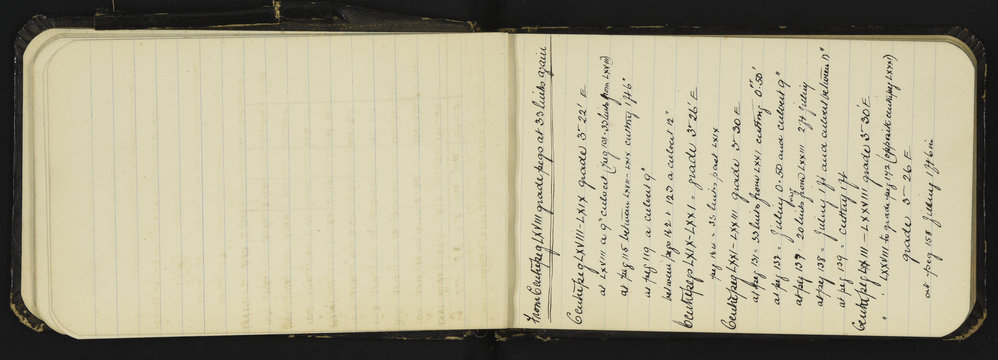 From Centrepeg LXVIII grade pegs at 33 links again
Centrepeg LXVIII-LXIX grade 3- 22' E
at LXVIII a 9" culvert (peg 101-33 links from LXVIII)
at peg 115 between LXVIII-LXIX cutting 1 ft 6"
at peg 119 a culvert 9"
between pegs 122 & 123 a culvert 12"
Centrepegs LXIX-LXXI = grade 3- 26' E
peg = 33 links past LXIX
Centrepeg LXXI-LXXIII grade 3- 30 E
at peg 131 = 33 links from LXXI cutting 0.50'
at peg 137 = filling 0.50 and culvert 9"
at peg 139 = 20 links from LXXIII 2 ft filling
at peg 138 = filling 1 ft and culvert between 12"
at peg 139 = cutting 1 ft
Centrepeg LXXIII - LXXVIII grade 3- 30' E
" LXXVIII to grade peg 172 (opposite centrepeg LXXX)
grade 3- 26 E
at peg 158 filling 1 ft 6 in